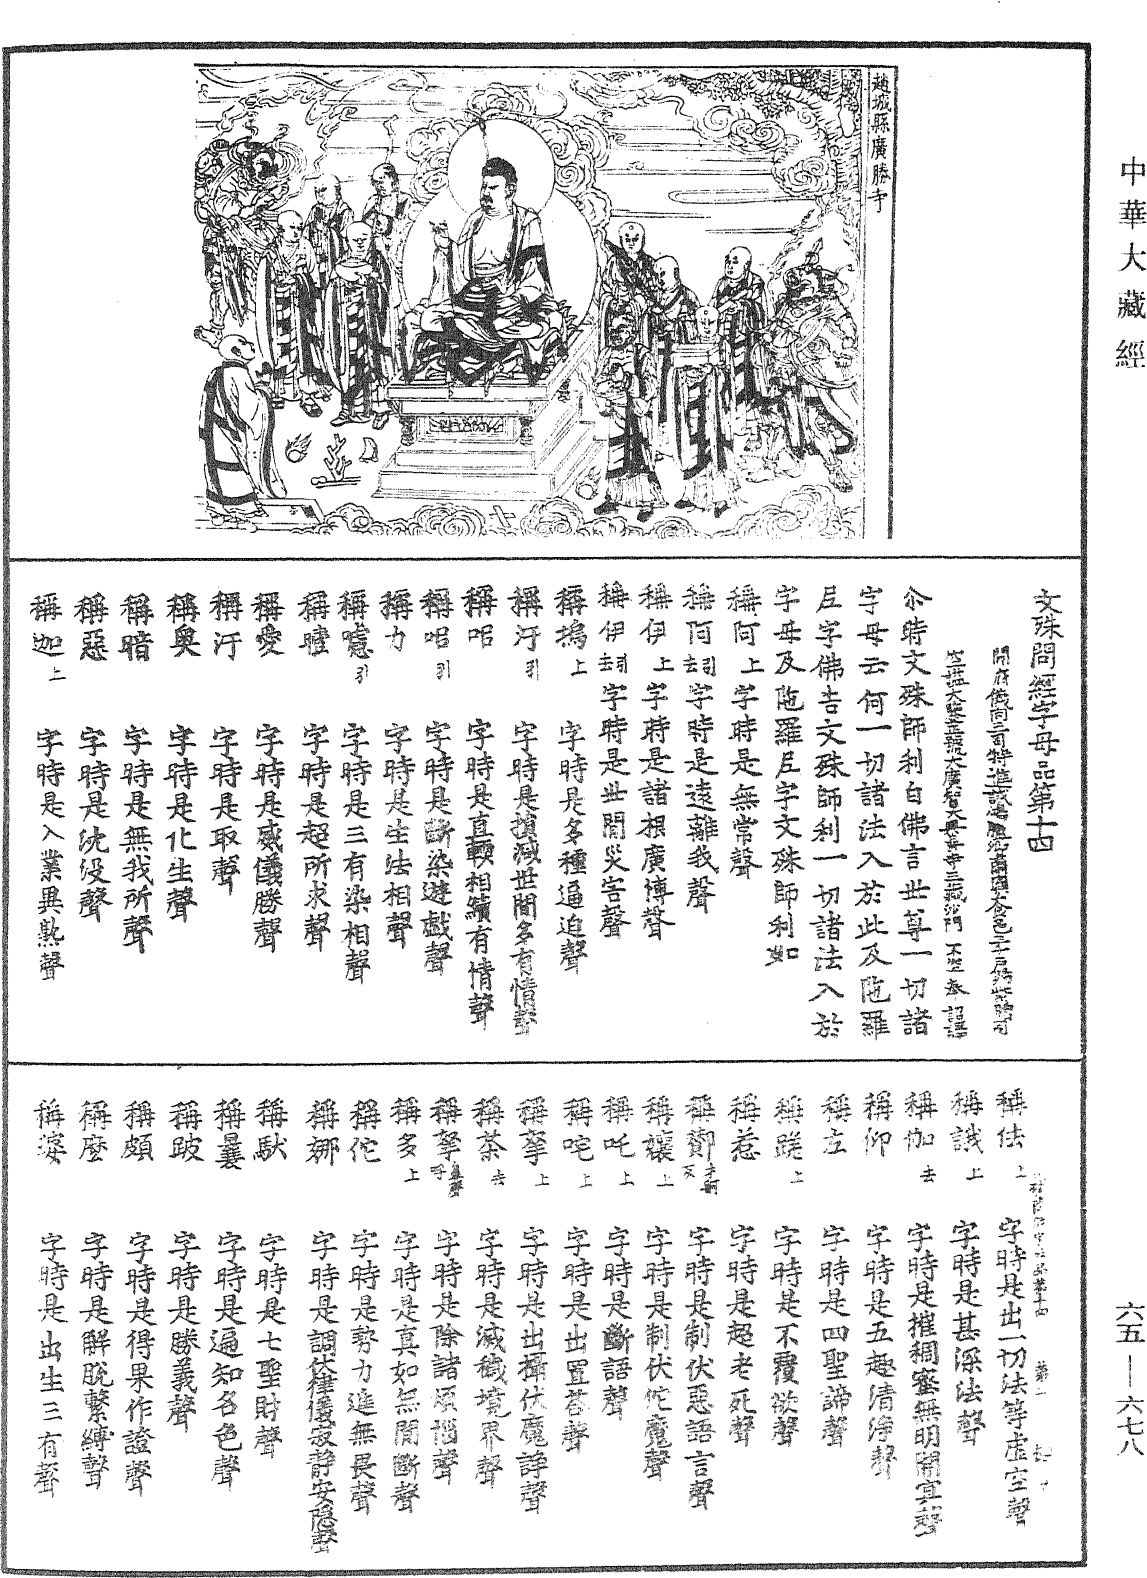 中華大藏經
趙城縣廣勝寺
文殊問經字母品第十四
開府儀同三司特進試鴻臚卿肅國公食邑三千戶賜紫贈司
空謚大鑒正號大廣智大興善寺三藏沙門不空奉 詔譯
尒時文殊師利白佛言世尊一切諸
字母云何一切諸法入於此及陁羅
尼字佛告文殊師利一切諸法入於
字母及陁羅尼字文殊師利如
稱阿上字時是無常聲
稱阿引去字時是遠離我聲
稱伊上字時是諸根廣博聲
稱伊引去字時是世間災害聲
稱塢上字時是多種逼迫聲
稱汙引字時是損減世間多有情聲
稱㖮字時是直輭相續有情聲
稱㖮引字時是斷染遊戲聲
稱力字時是生法相聲
稱嚧引字時是三有染相聲
稱曀字時是超所求聲
稱愛字時是威儀勝聲
稱汙字時是取聲
稱奧字時是化生聲
稱暗字時是無我所聲
稱惡字時是沈没聲
稱迦上字時是入業異熟聲
稱佉上字時是出一切法等虛空聲
稱誐上字時是甚深法聲
稱伽去字時是摧稠密無明闇冥聲
稱仰字時是五趣清淨聲
稱左字時是四聖諦聲
稱蹉上字時是不覆欲聲
稱惹字時是超老死聲
稱酇字時是制伏惡語言聲
稱孃上字時是制伏他魔聲
稱吒上字時是斷語聲
稱咤上字時是出置荅聲
稱拏上字時是出攝伏魔諍聲
稱茶去字時是滅穢境界聲
稱拏字時是除諸煩惱聲
稱多上字時是真如無間斷聲
稱佗字時是勢力進無畏聲
稱娜字時是調伏律儀寂静安隱聲
稱馱字時是七聖財聲
稱曩字時是遍知名色聲
稱跛字時是勝義聲
稱頗字時是得果作證聲
稱麼字時是解脫繫縛聲
稱婆字時是出生三有聲
六五—六七八